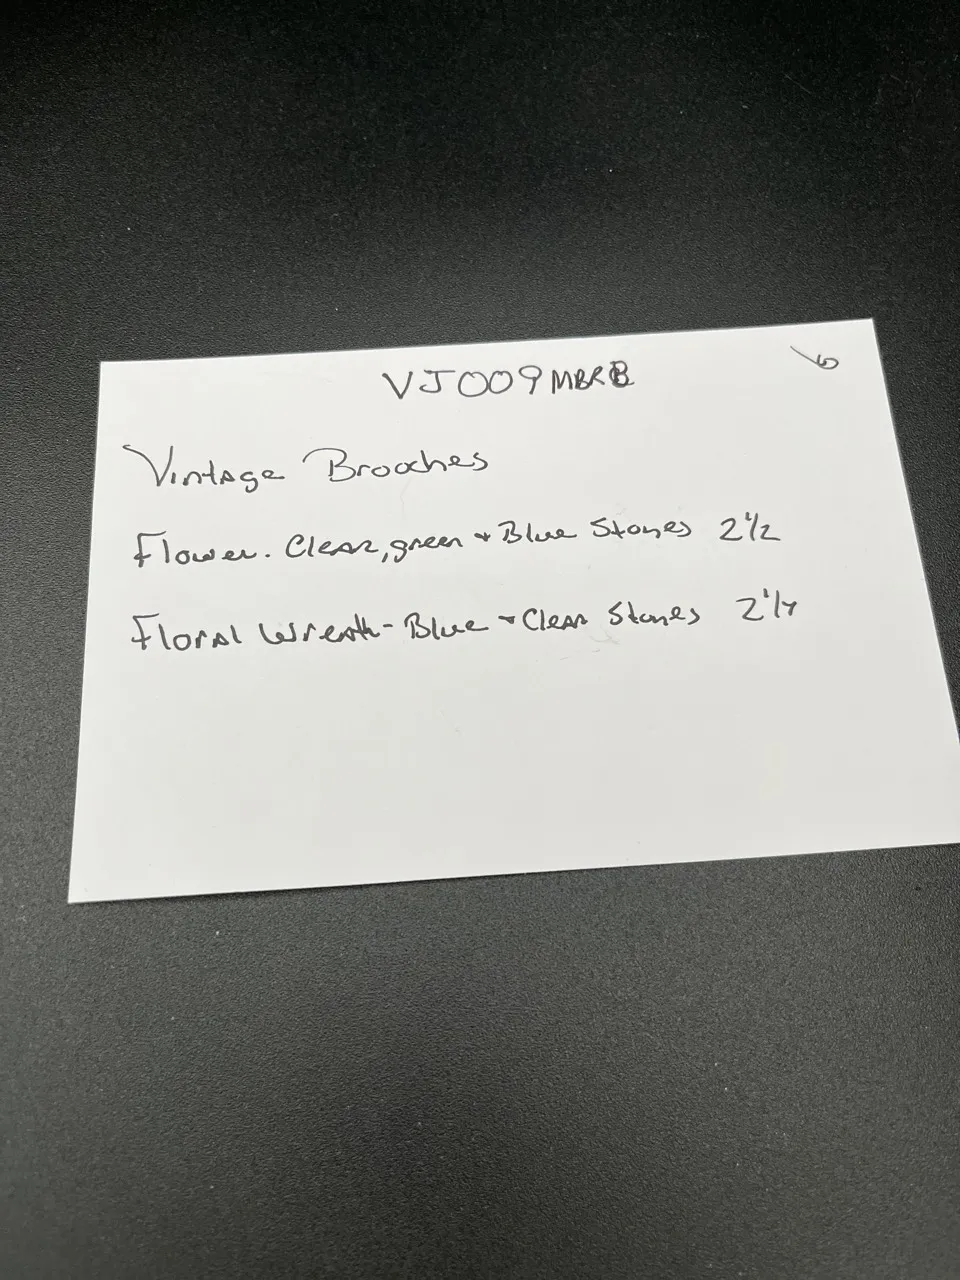 VJ009MBRB
Vintage Brooches
Flower. Clear, green + Blue Stones 2 1/2
Floral Wreath - Blue + Clear Stones 2 1/4